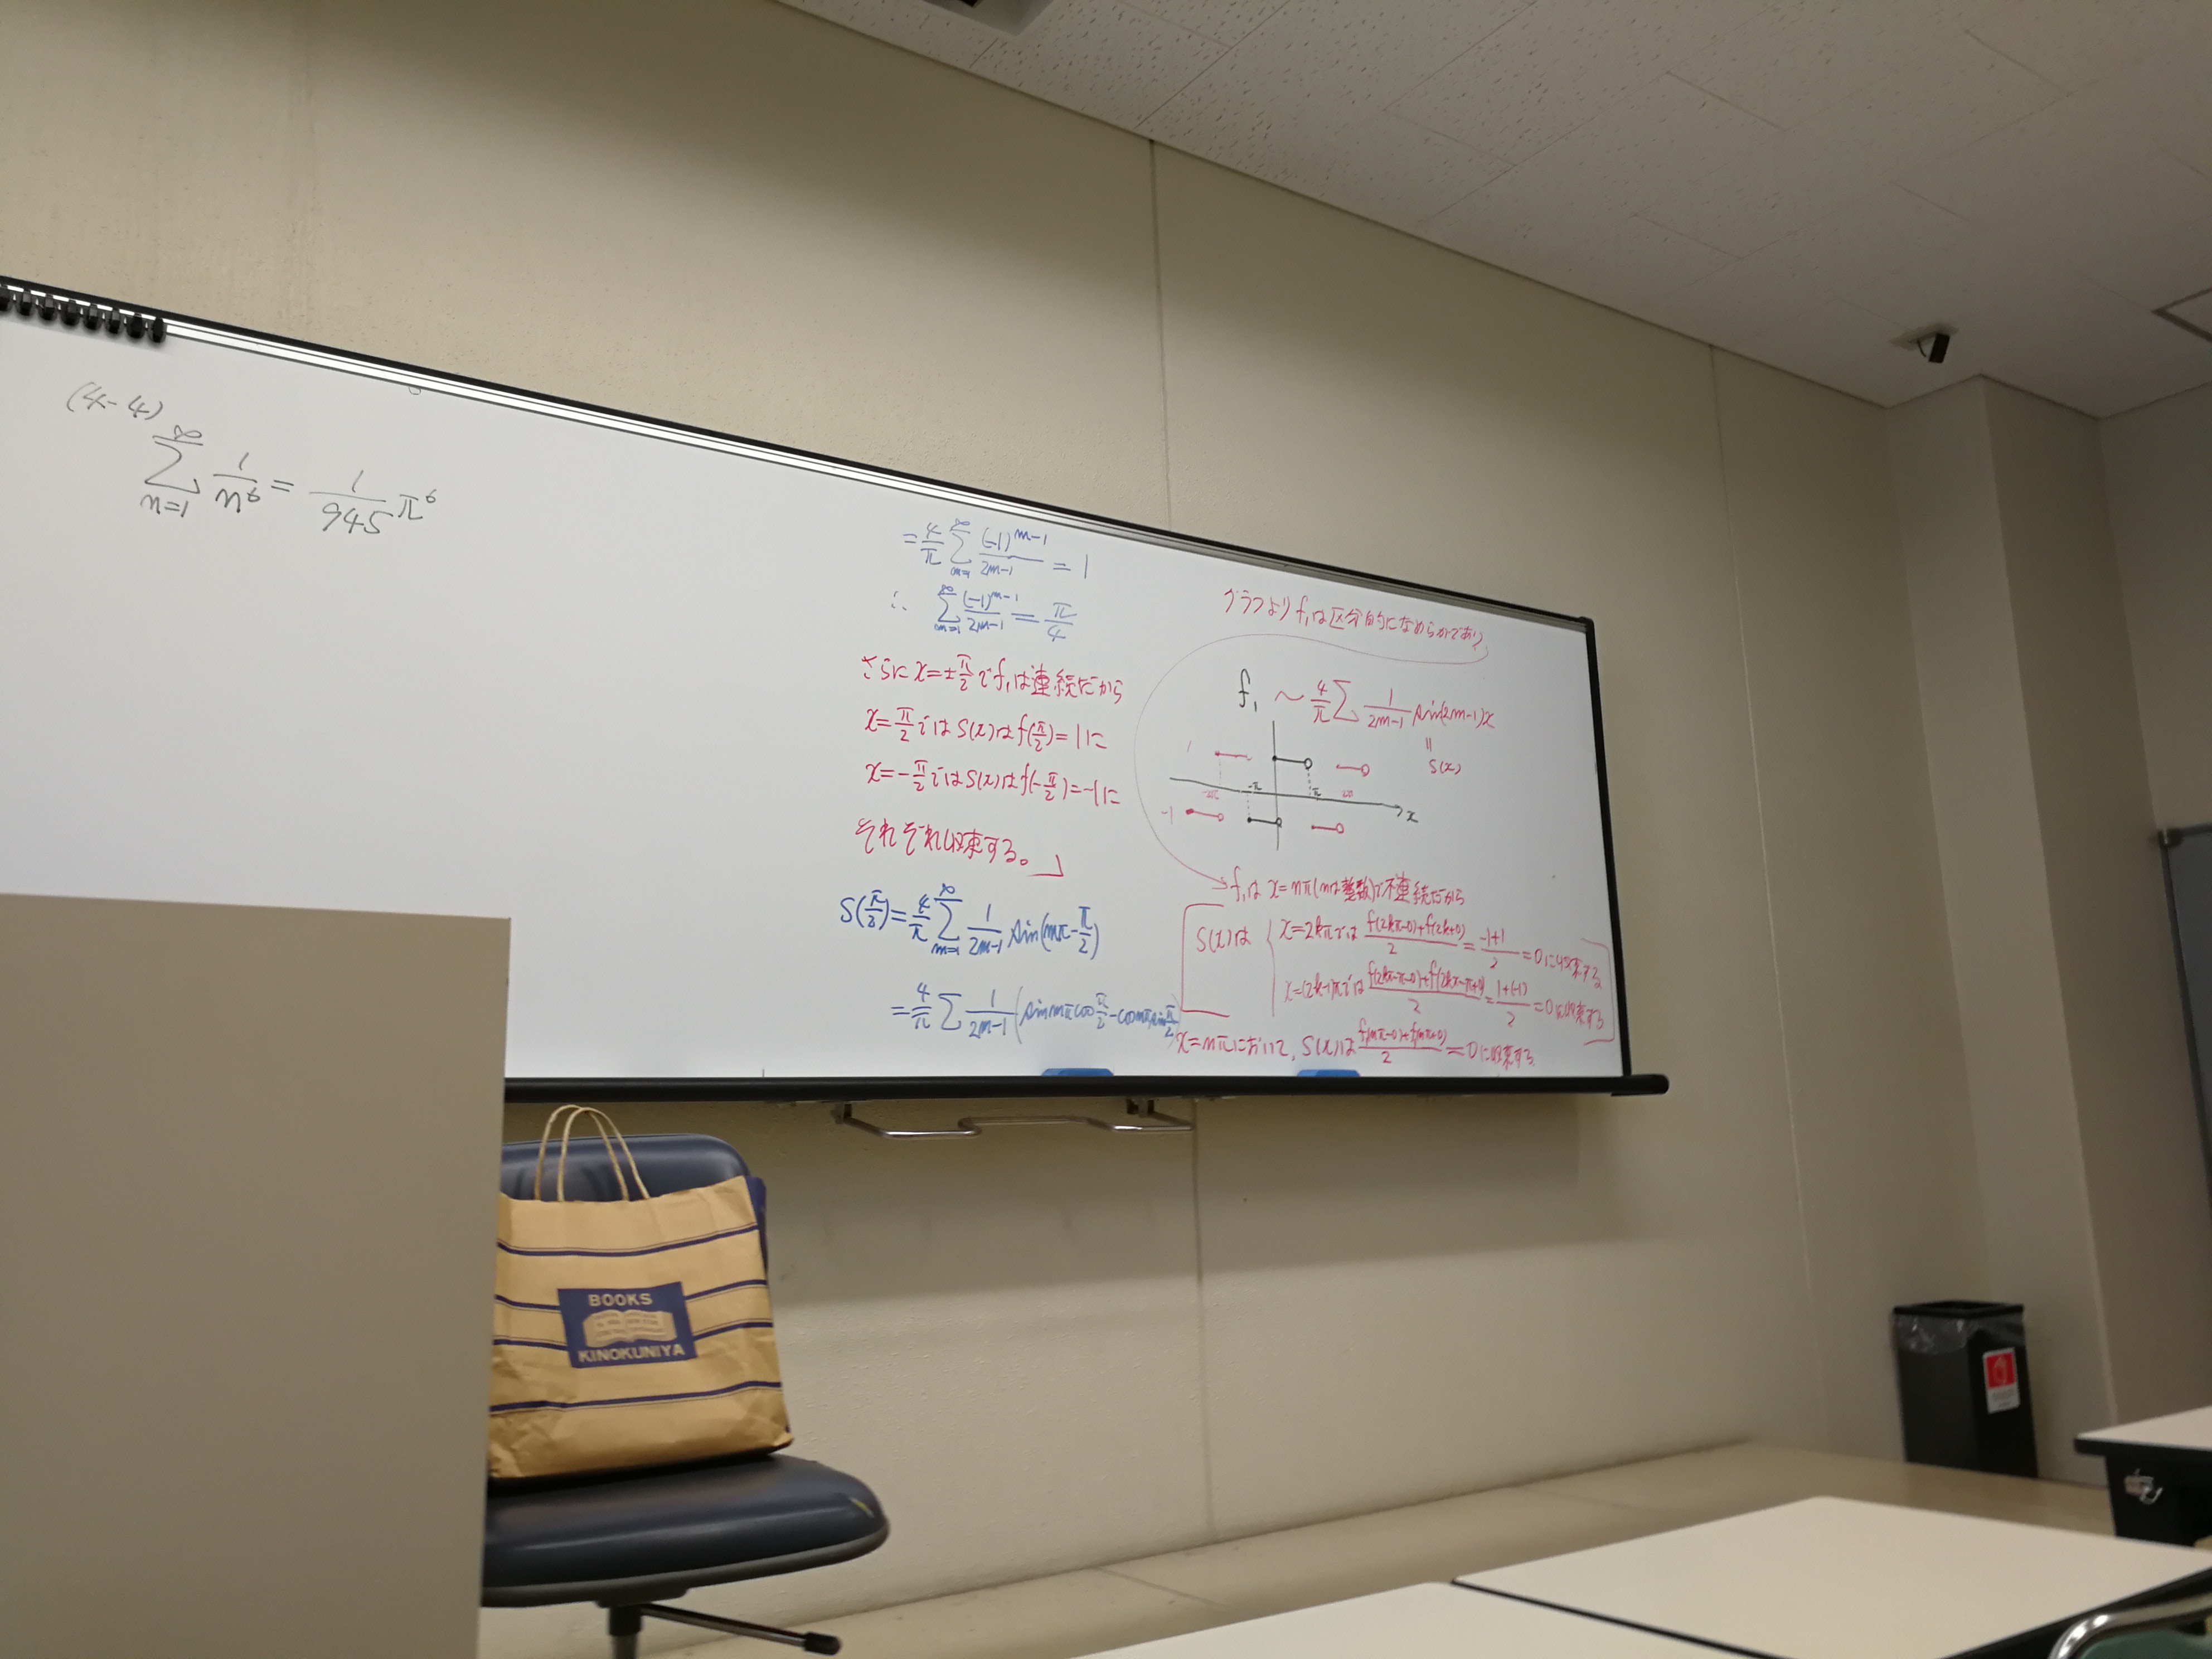 (4-4)
∞
∑ 1/n⁶ = 1/945 π⁶
n=1
= 4/π ∑_{m=1}^{∞} (-1)^{m-1}/(2m-1) = 1
∴ ∑_{m=1}^{∞} (-1)^{m-1}/(2m-1) = π/4
さらにx=±π/2でf₁は連続だから
x=π/2ではS(x)はf(π/2)=1に
x=-π/2ではS(x)はf(-π/2)=-1に
それぞれ収束する。」
S(π/2)=4/π ∑_{m=1}^{∞} 1/(2m-1) sin(mπ-π/2)
=4/π ∑ 1/(2m-1) (sin mπ cos π/2 - cos mπ sin π/2)
グラフよりf₁は区分的になめらかであり
f₁ ~ 4/π ∑ 1/(2m-1) sin(2m-1)x
||
S(x)
1
-2π -π π 2π
x
-1
f₁は x=nπ(nは整数)で不連続だから
S(x)は
x=2kπでは (f(2kπ-0)+f(2k+0))/2 = (-1+1)/2 = 0に収束する
x=(2k-1)πでは (f(2kπ-π-0)+f(2kπ-π+0))/2 = (1+(-1))/2 = 0に収束する
x=nπにおいて、S(x)は (f(nπ-0)+f(nπ+0))/2 = 0に収束する
BOOKS
KINOKUNIYA